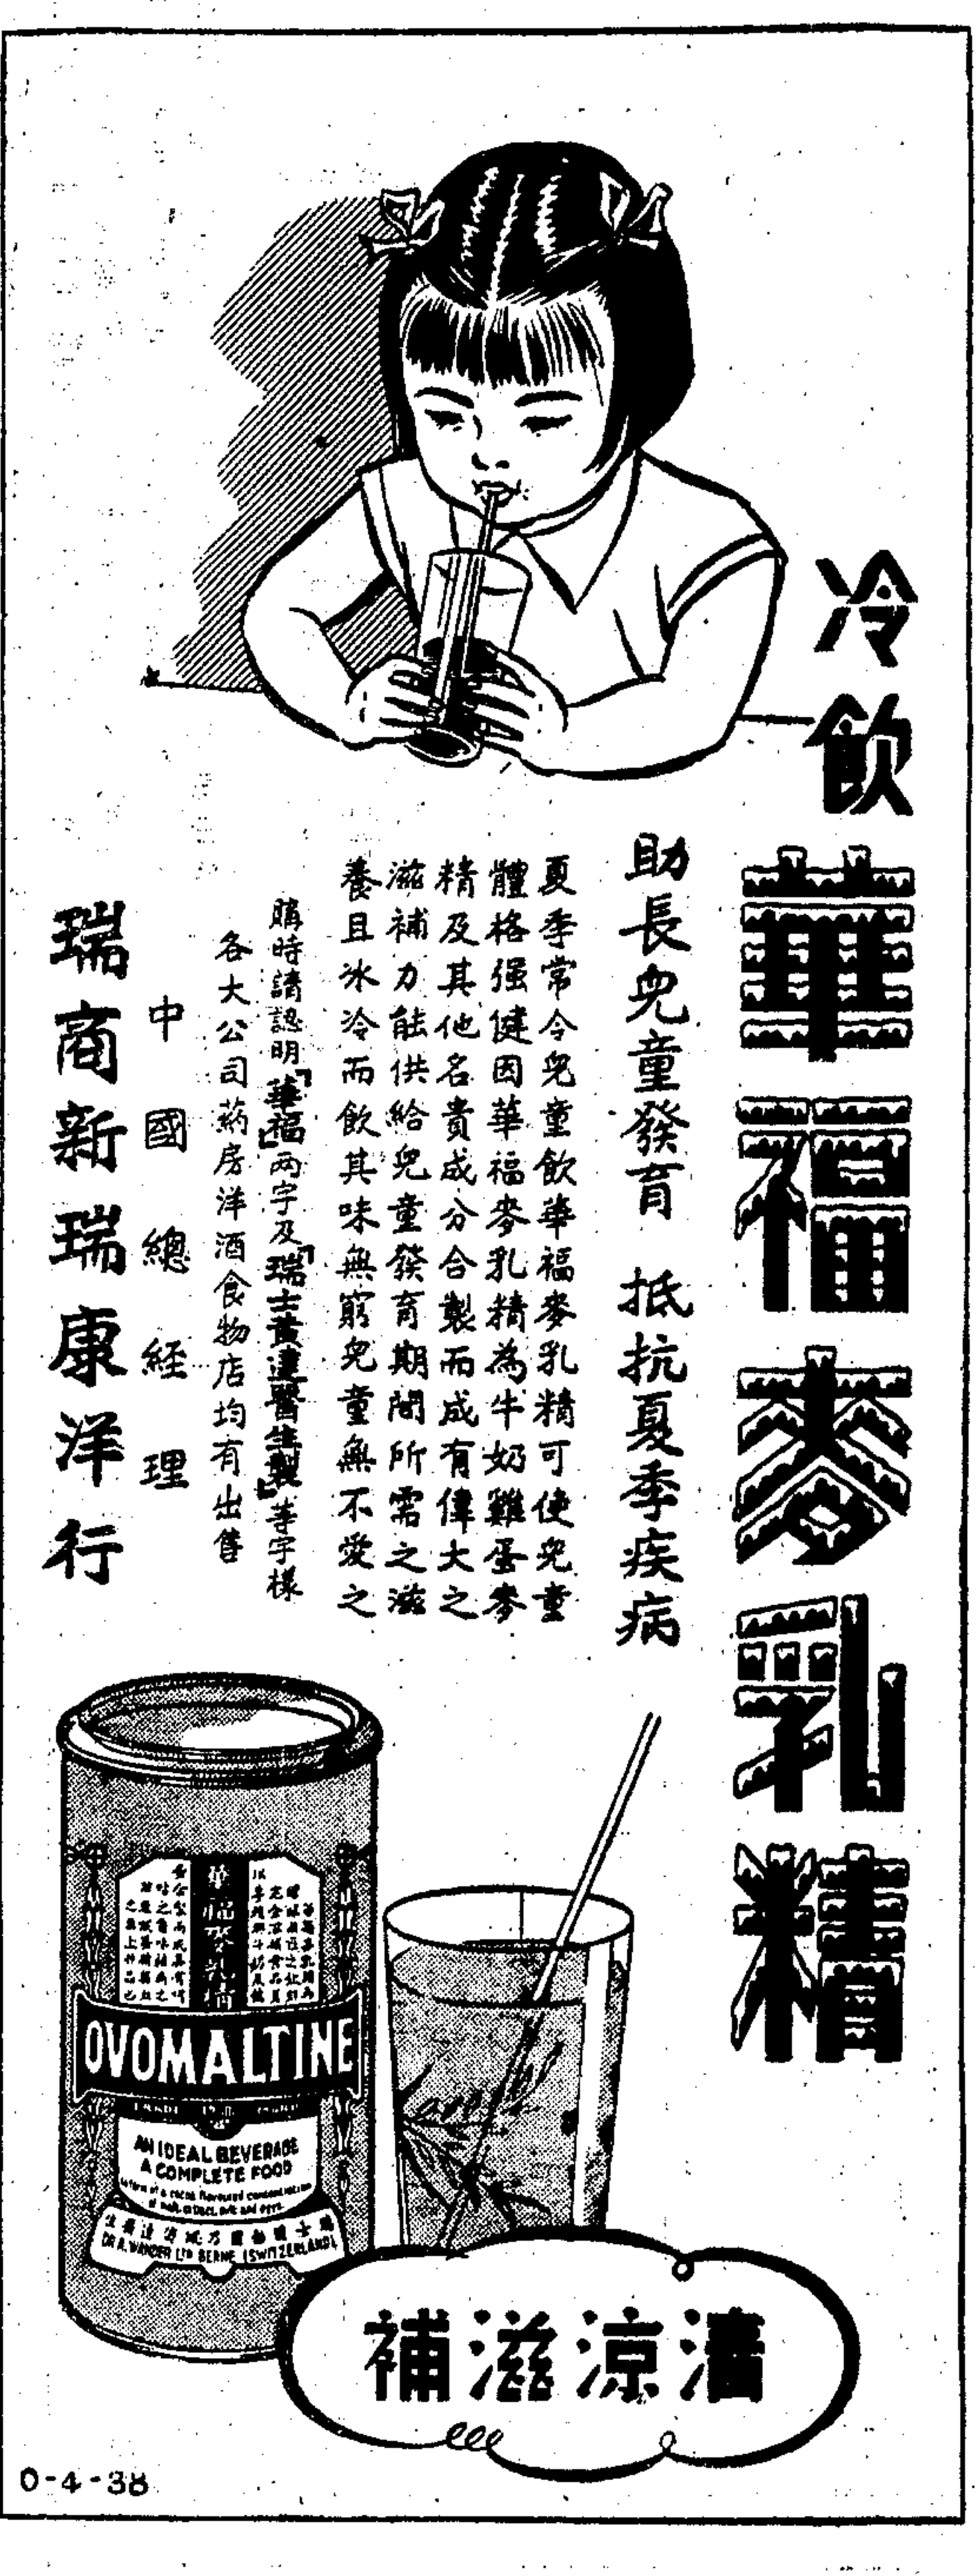 冷飲
華福麥乳精
助長兒童發育 抵抗夏季疾病
夏季常令兒童飲華福麥乳精可使兒童
體格强健因華福麥乳精為牛奶雞蛋麥
精及其他名貴成分合製而成有偉大之
滋補力能供給兒童發育期間所需之滋
養且冰冷而飲其味無窮兒童無不愛之
購時請認明「華福」两字及「瑞士黃達醫生製」等字樣
各大公司葯房洋酒食物店均有出售
中國總經理
瑞商新瑞康洋行
華福麥乳精
OVOMALTINE
AN IDEAL BEVERAGE
A COMPLETE FOOD
DR A. WANDER LTD BERNE (SWITZERLAND)
清涼滋補
0-4-38